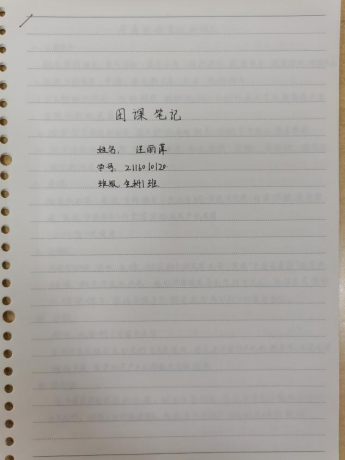 团课笔记
姓名: 汪丽萍
学号: 2116010120
班级 生科1班